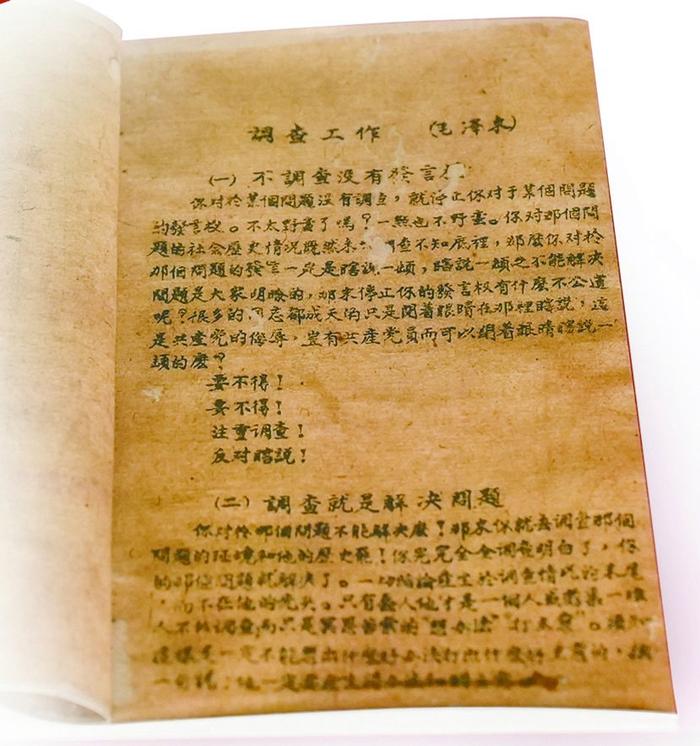 調查工作 (毛澤東)
(一) 不調查没有發言
你对於某個問題没有調查，就停止你对于某個問題
的發言权。不太野蛮了嗎？一點也不野蛮。你对那個問
題的社会歷史情况既然未 調查不知底裡，那麽你对於
那個問題的發言一定是瞎説一頓，瞎説一頓之不能解决
問題是大家明暸的，那末停止你的發言权有什麽不公道
呢？很多的同志都成天的只是閉着眼睛在那裡瞎説，這
是共產党的侮辱，豈有共產党員而可以閉着眼睛瞎説一
頓的麽？
要不得！
要不得！
注重调查！
反对瞎説！
(二) 調查就是解决問題
你对於那個問題不能解决麽？那末你就去調查那個
問題的环境和他的歷史罷！你完完全全調查明白了，你
的那個問題就解决了。一切結論產生於調查情况的末尾
，而不在他的先头。只有蠢人他才是一個人或邀集一堆
人不作調查而只是冥思苦索的“想办法”“打主意”。
這樣是一定不能想出什麽好办法打出什麽好主意的，
一句説：他一定要產生